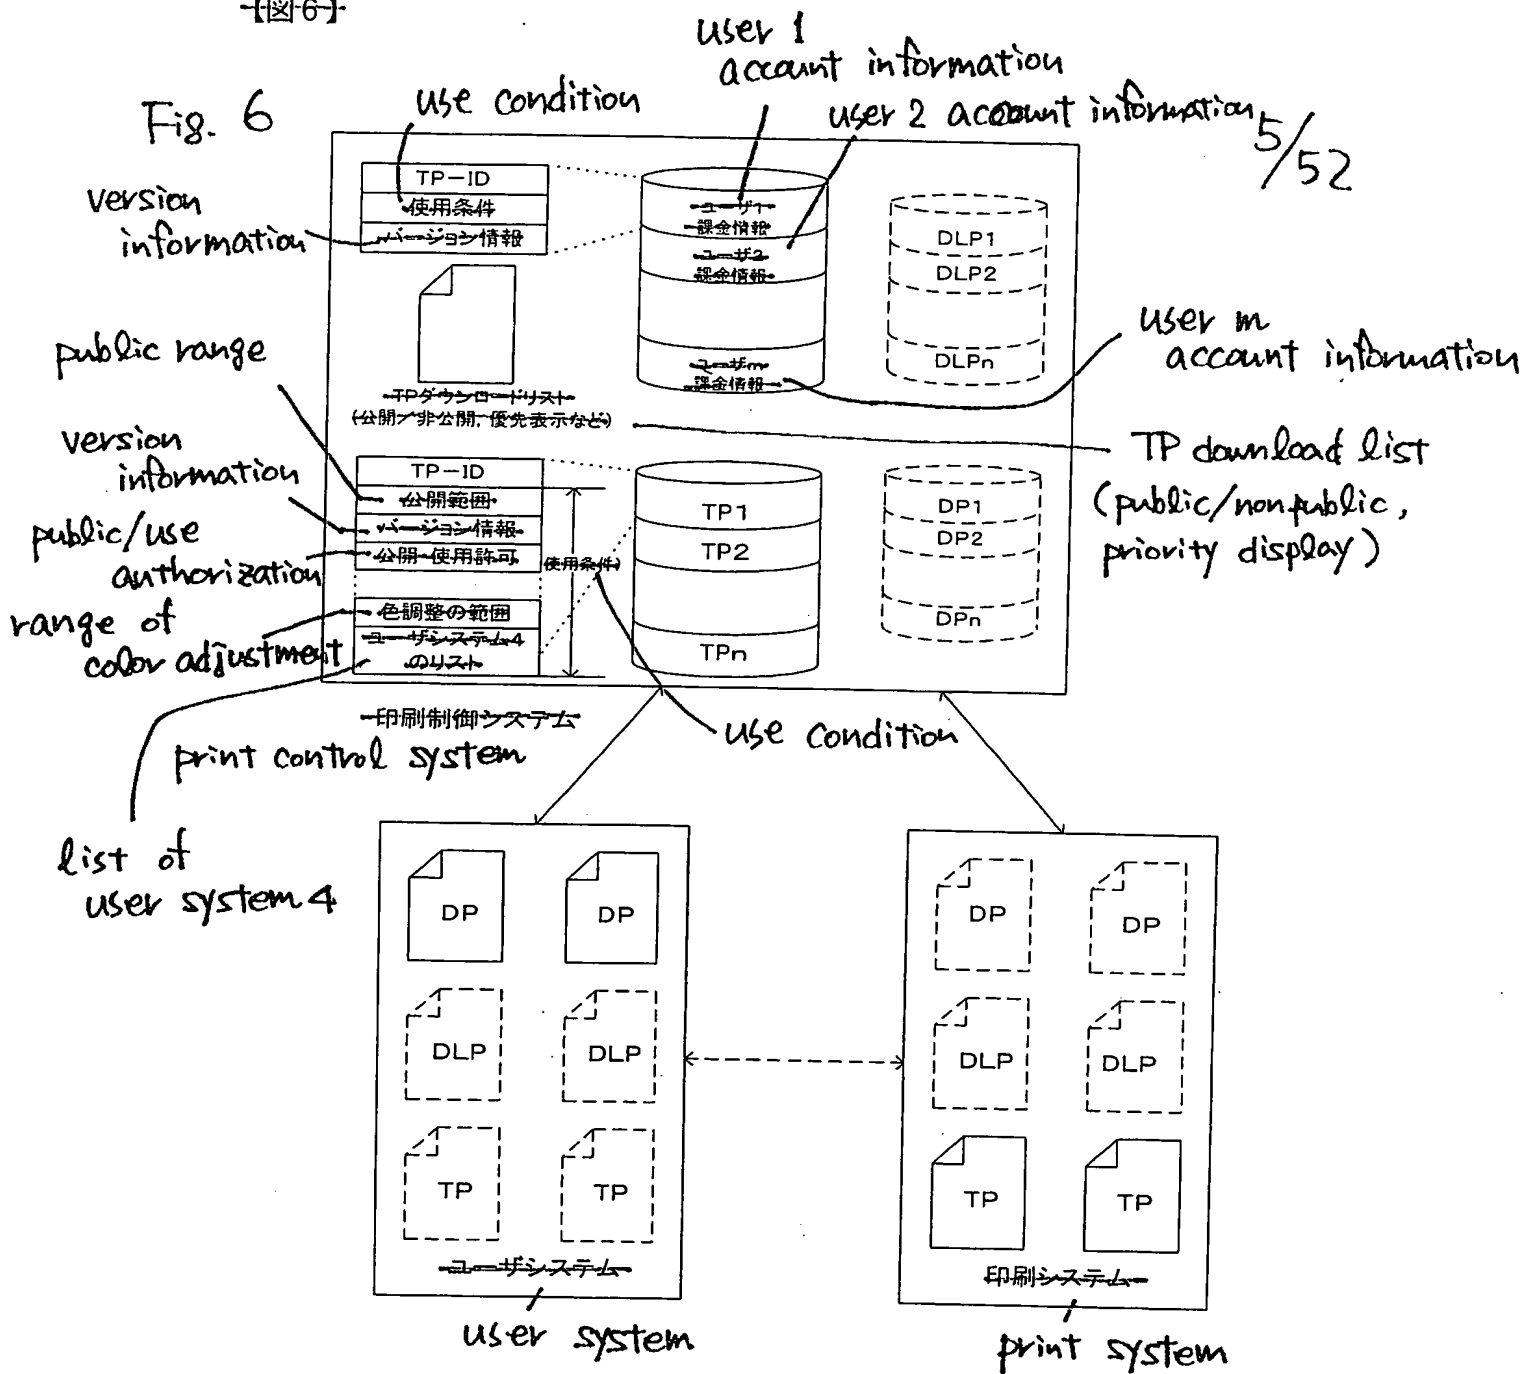 【図6】
Fig. 6
5/52
use condition
user 1
account information
user 2 account information
version
information
TP-ID
使用条件
バージョン情報
ユーザ1
課金情報
ユーザ2
課金情報
ユーザm
課金情報
DLP1
DLP2
DLPn
user m
account information
public range
TPダウンロードリスト
(公開/非公開, 優先表示など)
TP download list
(public/nonpublic,
priority display)
version
information
public/use
authorization
range of
color adjustment
TP-ID
公開範囲
バージョン情報
公開・使用許可
色調整の範囲
ユーザシステム4
のリスト
(使用条件)
TP1
TP2
TPn
DP1
DP2
DPn
印刷制御システム
print control system
use condition
list of
user system 4
DP
DP
DLP
DLP
TP
TP
ユーザシステム
user system
DP
DP
DLP
DLP
TP
TP
印刷システム
print system